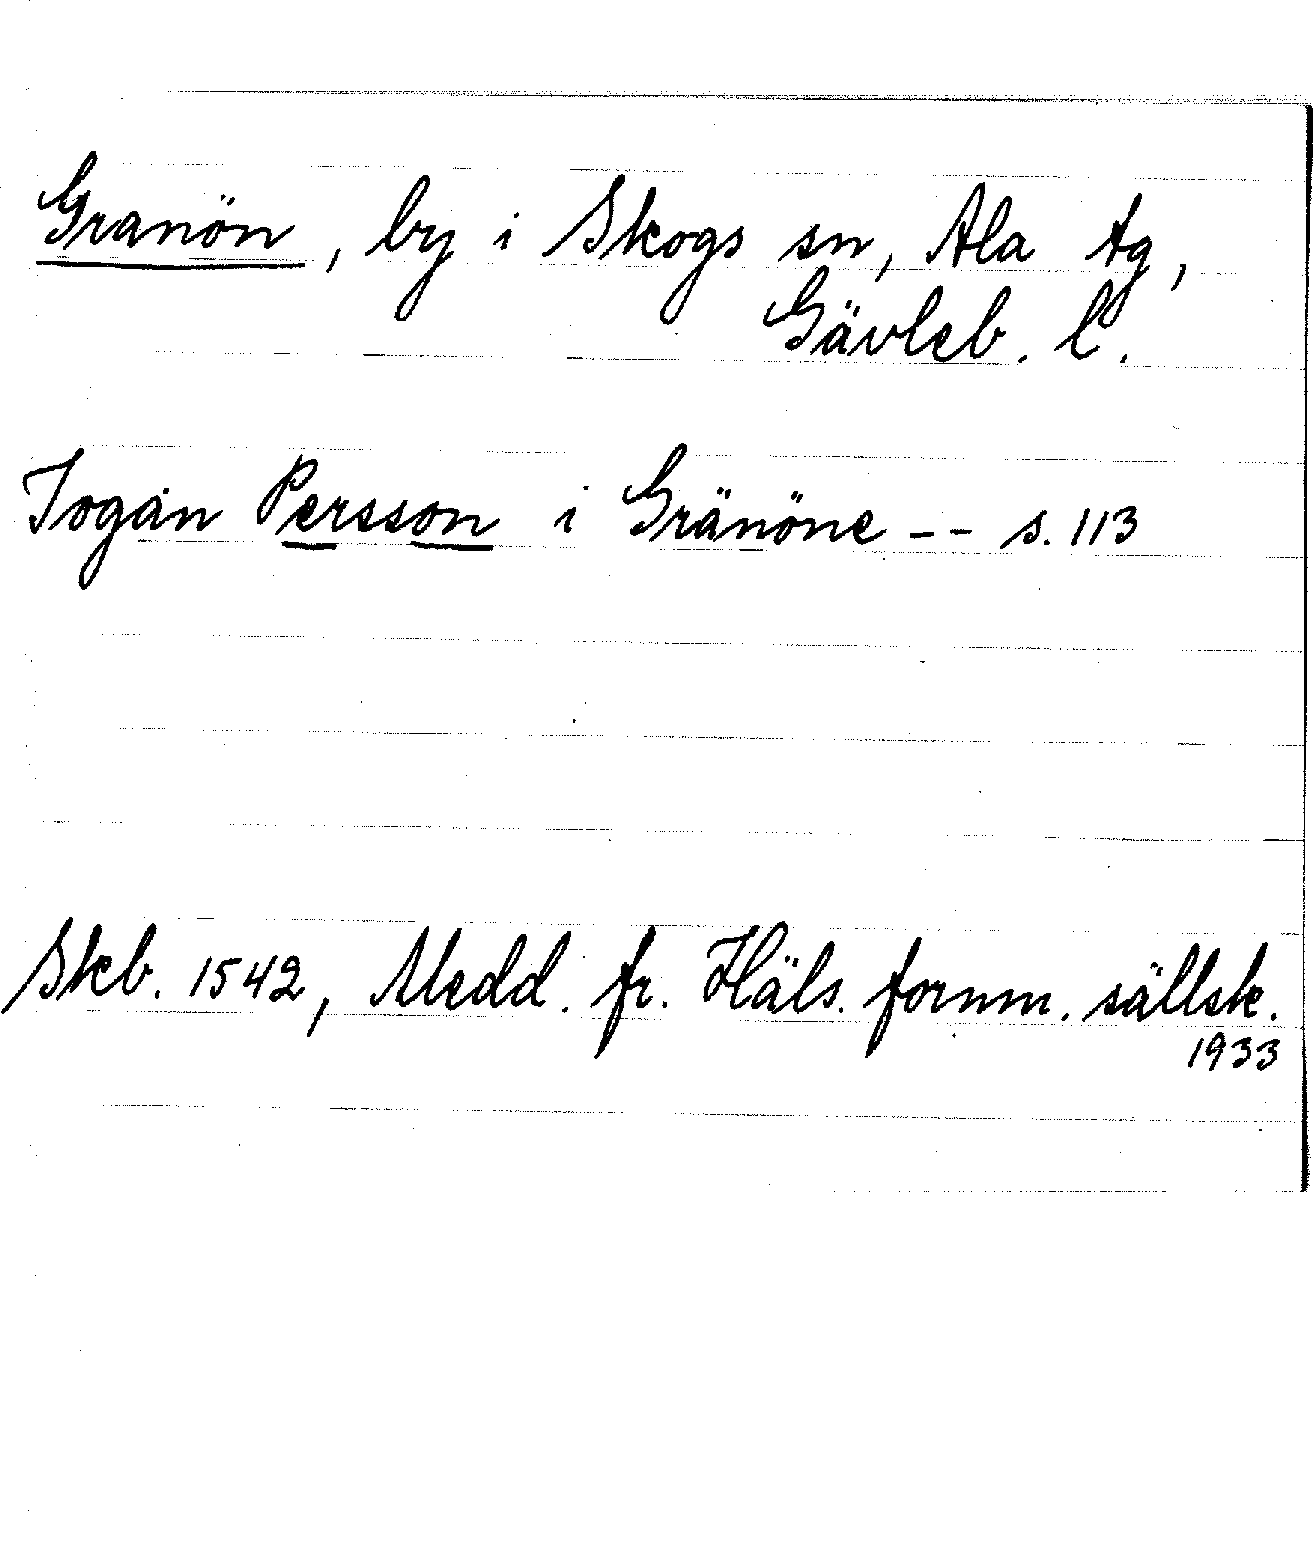 Granön, by i Skogs sn, Ala tg,
Gävleb. l.
Jogan Persson i Gränöne -- s. 113
Skb. 1542, Medd. fr. Häls. fornm. sällsk.
1933